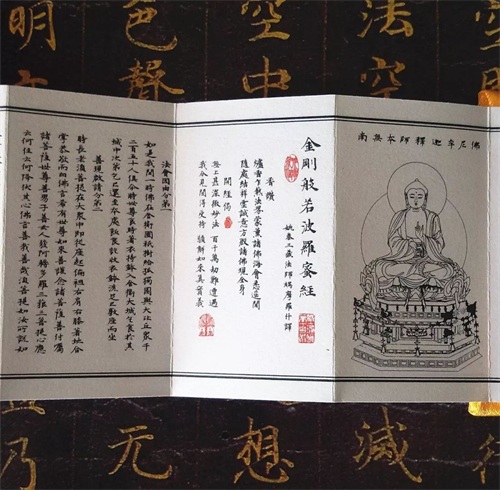 法空
空中
色聲
明
南無本師釋迦牟尼佛
金剛般若波羅蜜經
姚秦三藏法師鳩摩羅什譯
香讚
爐香乍爇法界蒙薰諸佛海會悉遙聞
隨處結祥雲誠意方殷諸佛現全身
開經偈
無上甚深微妙法 百千萬劫難遭遇
我今見聞得受持 願解如來真實義
法會因由分第一
如是我聞一時佛在舍衛國祇樹給孤獨園與大比丘眾千
二百五十人俱爾時世尊食時著衣持鉢入舍衛大城乞食於其
城中次第乞已還至本處飯食訖收衣鉢洗足已敷座而坐
善現啟請分第二
時長老須菩提在大眾中即從座起偏袒右肩右膝著地合
掌恭敬而白佛言希有世尊如來善護念諸菩薩善付囑
諸菩薩世尊善男子善女人發阿耨多羅三藐三菩提心應
云何住云何降伏其心佛言善哉善哉須菩提如汝所說如
滅
想
无
乃